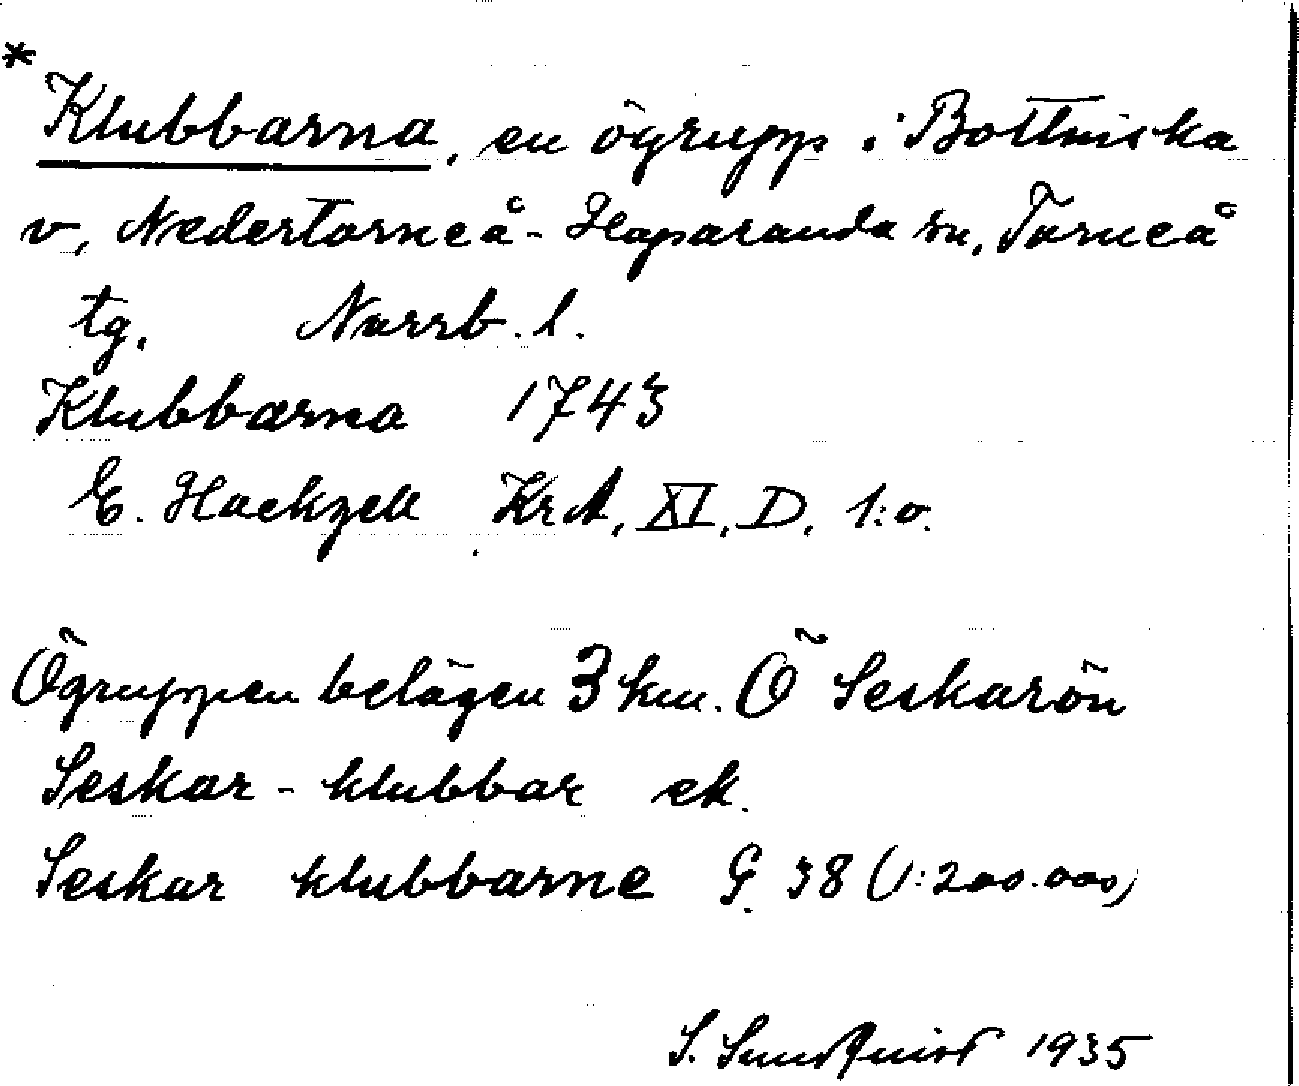 * Klubbarna, en ögrupp i Bottniska
v, Nedertorneå - Haparanda sn, Torneå
tg. Norrb. l.
Klubbarna 1743
E. Hackzell KrA, XI, D, 1:o.
Ögruppen belägen 3 km. Ö Seskarön
Seskar - klubbar ek.
Seskar klubbarne G. 38 (1:200.000)
S. Sundqvist 1935